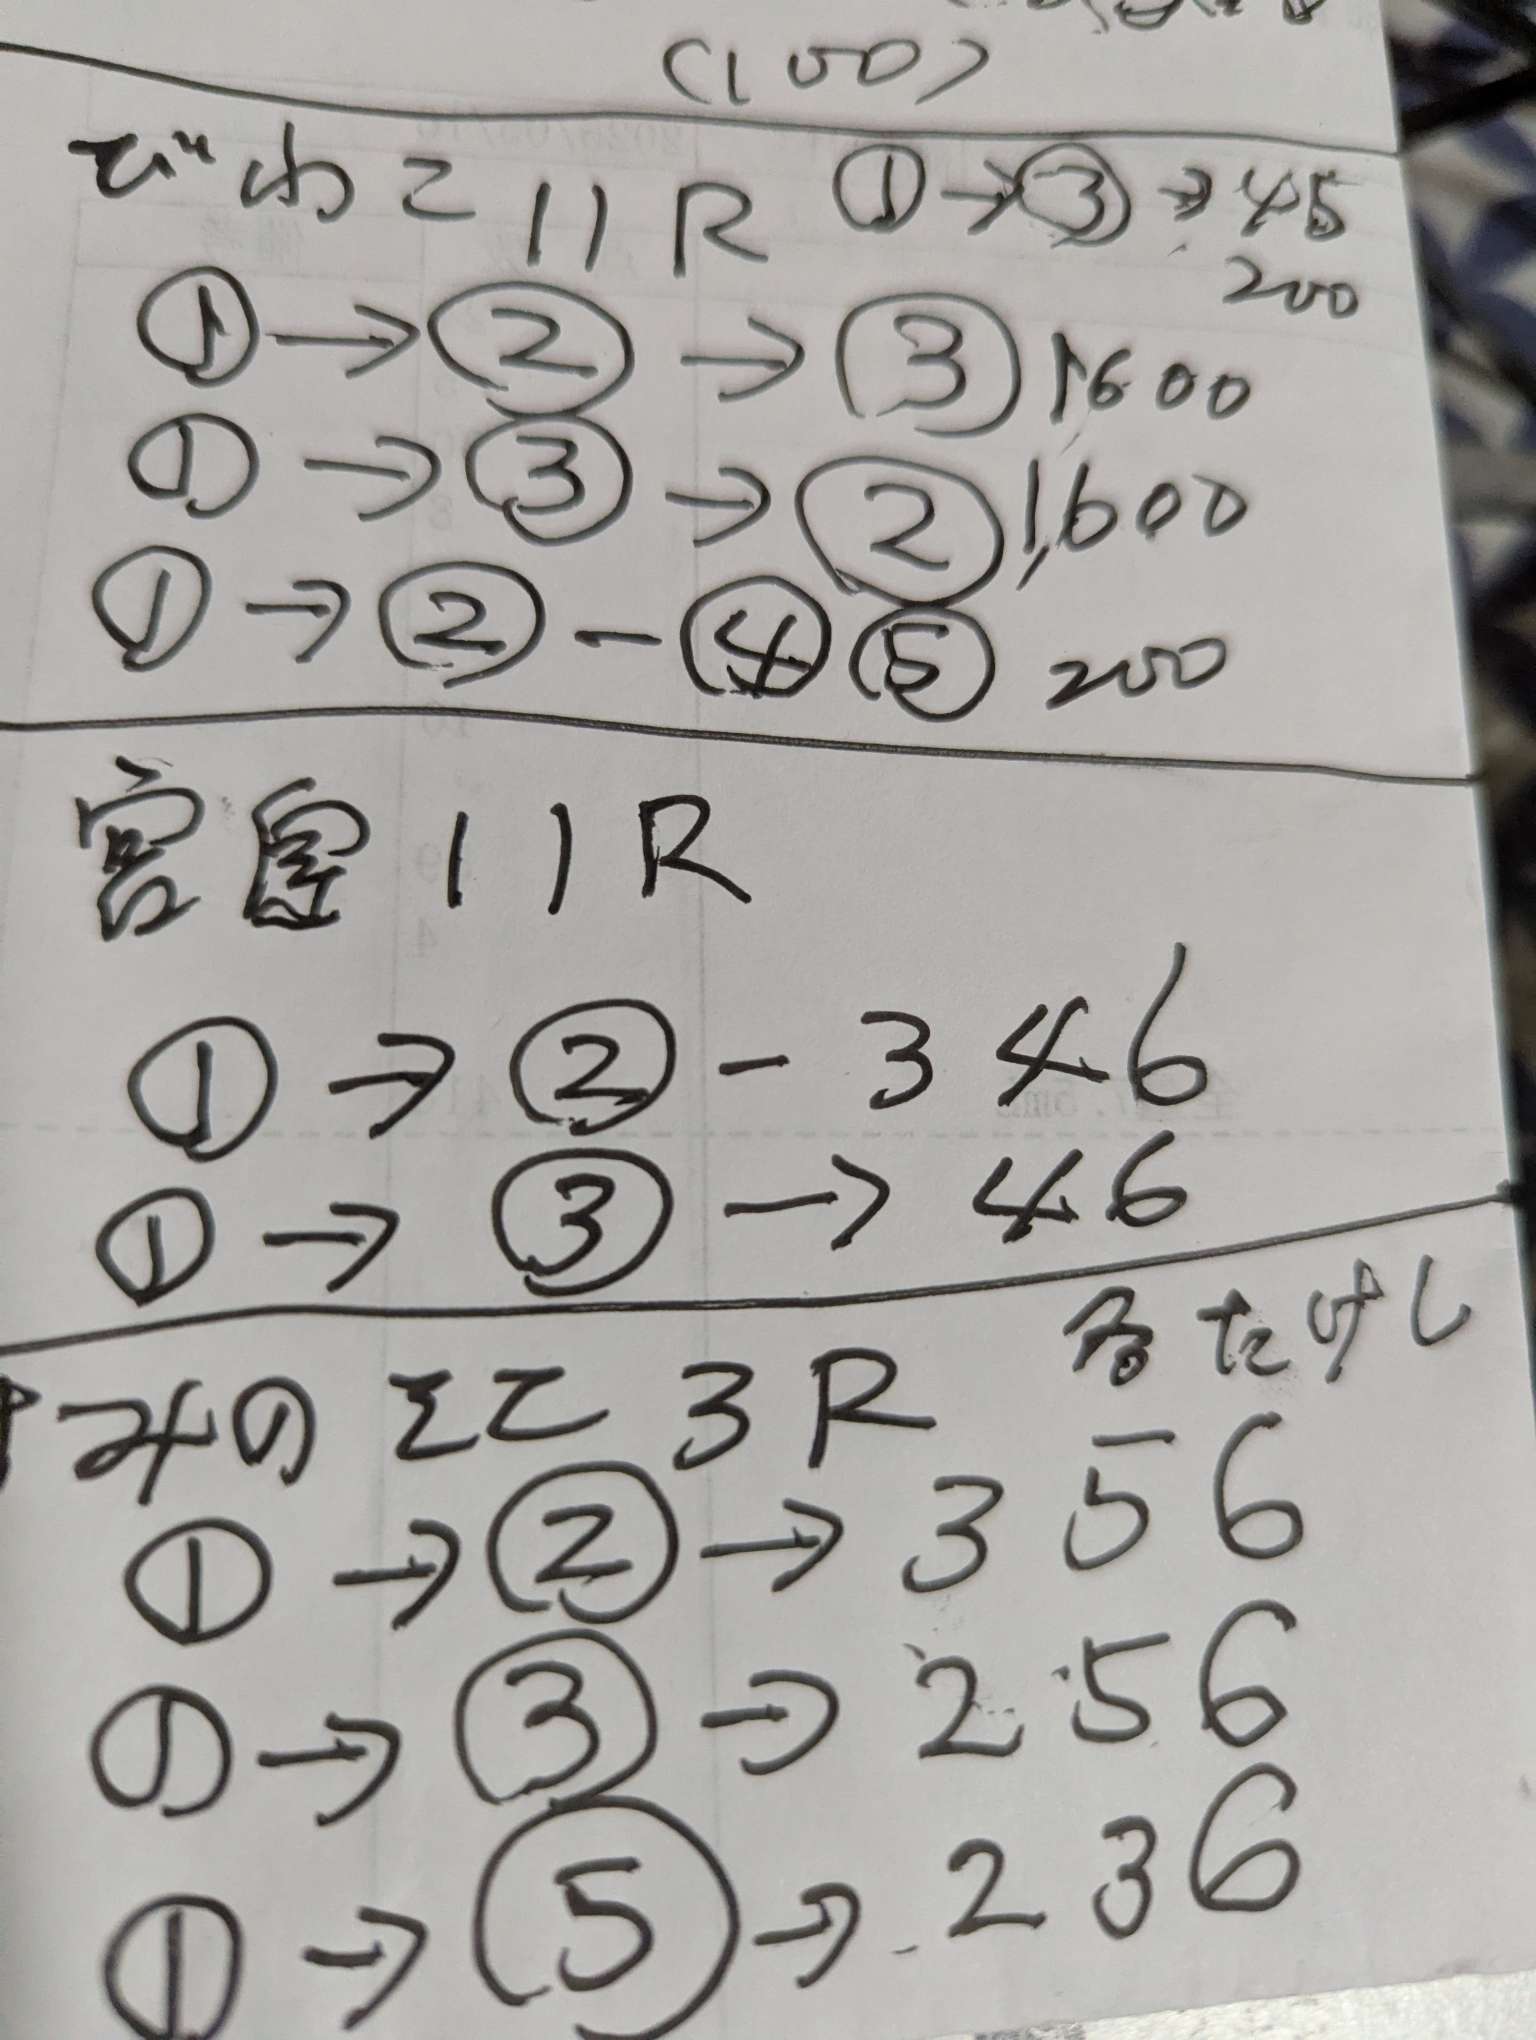 (100)
びわこ 11R ①→③→45
200
①→②→③ 1600
①→③→② 1,600
①→②-④⑤ 200
宮島 11R
①→②-346
①→③→46
3R たけし
①→②→356
①→③→256
①→⑤→236